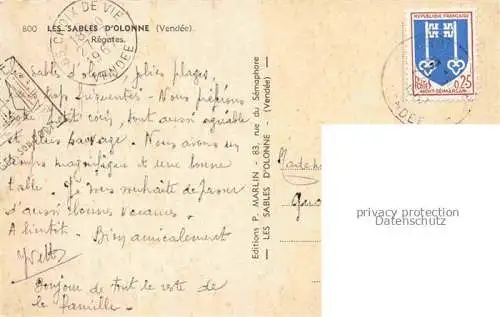 800 LES SABLES D'OLONNE (Vendée).
Régates.
CROIX DE VIE
VENDEE
RÉPUBLIQUE FRANÇAISE
0,25
MONT-DE-MARSAN
Sables d'olonne, jolies plages,
trop fréquentées. Nous préférons
petit coin, tout aussi agréable
et plus sauvage. Nous avons un
temps magnifique et une bonne
table. Je vous souhaite de passer
d'aussi bonnes vacances.
A bientôt. Bien amicalement
Yvette
Bonjour de tout le reste de
la famille.
Editions P. MARLIN - 83, rue du Sémaphore
— LES SABLES D'OLONNE (Vendée) —
privacy protection
Datenschutz